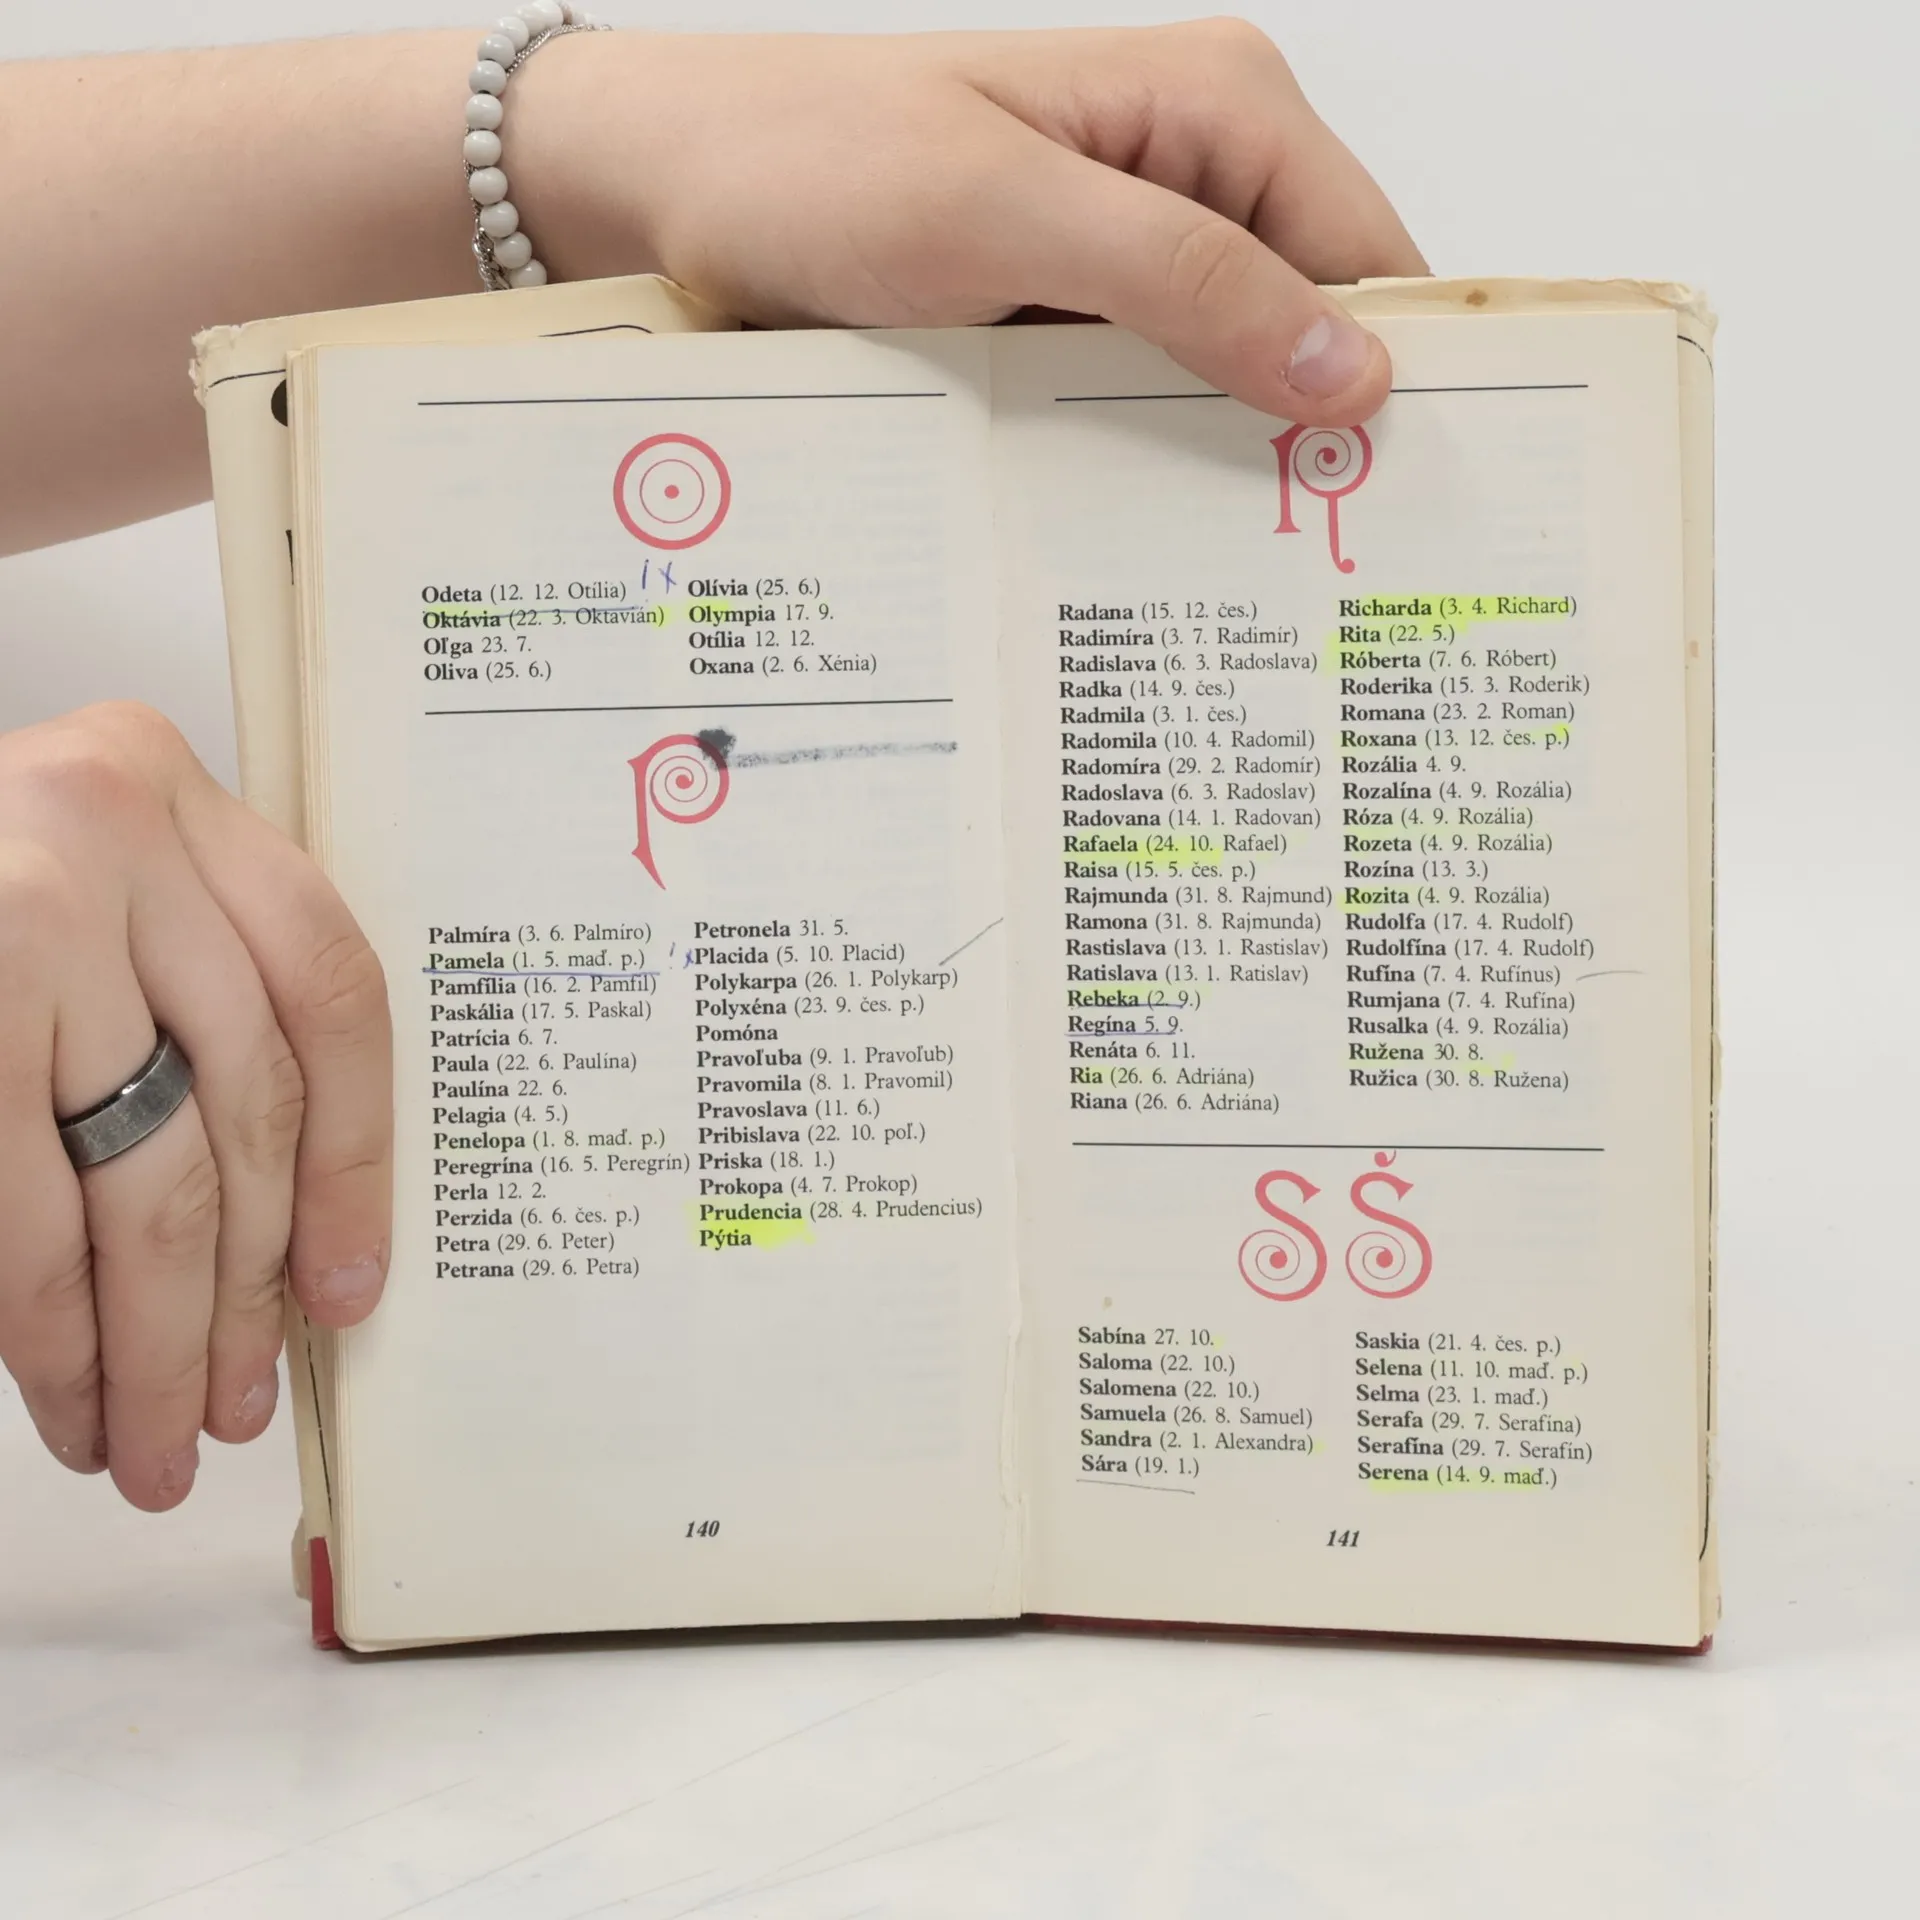 O
Odeta (12. 12. Otília)
Oktávia (22. 3. Oktavián)
Oľga 23. 7.
Oliva (25. 6.)
! x
Olívia (25. 6.)
Olympia 17. 9.
Otília 12. 12.
Oxana (2. 6. Xénia)
P
Palmíra (3. 6. Palmíro)
Pamela (1. 5. maď. p.)
Pamfília (16. 2. Pamfil)
Paskália (17. 5. Paskal)
Patrícia 6. 7.
Paula (22. 6. Paulína)
Paulína 22. 6.
Pelagia (4. 5.)
Penelopa (1. 8. maď. p.)
Peregrína (16. 5. Peregrín)
Perla 12. 2.
Perzida (6. 6. čes. p.)
Petra (29. 6. Peter)
Petrana (29. 6. Petra)
! x
Petronela 31. 5.
Placida (5. 10. Placid)
Polykarpa (26. 1. Polykarp)
Polyxéna (23. 9. čes. p.)
Pomóna
Pravoľuba (9. 1. Pravoľub)
Pravomila (8. 1. Pravomil)
Pravoslava (11. 6.)
Pribislava (22. 10. poľ.)
Priska (18. 1.)
Prokopa (4. 7. Prokop)
Prudencia (28. 4. Prudencius)
Pýtia
140
R
Radana (15. 12. čes.)
Radimíra (3. 7. Radimír)
Radislava (6. 3. Radoslava)
Radka (14. 9. čes.)
Radmila (3. 1. čes.)
Radomila (10. 4. Radomil)
Radomíra (29. 2. Radomír)
Radoslava (6. 3. Radoslav)
Radovana (14. 1. Radovan)
Rafaela (24. 10. Rafael)
Raisa (15. 5. čes. p.)
Rajmunda (31. 8. Rajmund)
Ramona (31. 8. Rajmunda)
Rastislava (13. 1. Rastislav)
Ratislava (13. 1. Ratislav)
Rebeka (2. 9.)
Regína 5. 9.
Renáta 6. 11.
Ria (26. 6. Adriána)
Riana (26. 6. Adriána)
Richarda (3. 4. Richard)
Rita (22. 5.)
Róberta (7. 6. Róbert)
Roderika (15. 3. Roderik)
Romana (23. 2. Roman)
Roxana (13. 12. čes. p.)
Rozália 4. 9.
Rozalína (4. 9. Rozália)
Róza (4. 9. Rozália)
Rozeta (4. 9. Rozália)
Rozína (13. 3.)
Rozita (4. 9. Rozália)
Rudolfa (17. 4. Rudolf)
Rudolfína (17. 4. Rudolf)
Rufína (7. 4. Rufínus)
Rumjana (7. 4. Rufína)
Rusalka (4. 9. Rozália)
Ružena 30. 8.
Ružica (30. 8. Ružena)
S Š
Sabína 27. 10.
Saloma (22. 10.)
Salomena (22. 10.)
Samuela (26. 8. Samuel)
Sandra (2. 1. Alexandra)
Sára (19. 1.)
Saskia (21. 4. čes. p.)
Selena (11. 10. maď. p.)
Selma (23. 1. maď.)
Serafa (29. 7. Serafína)
Serafína (29. 7. Serafín)
Serena (14. 9. maď.)
141